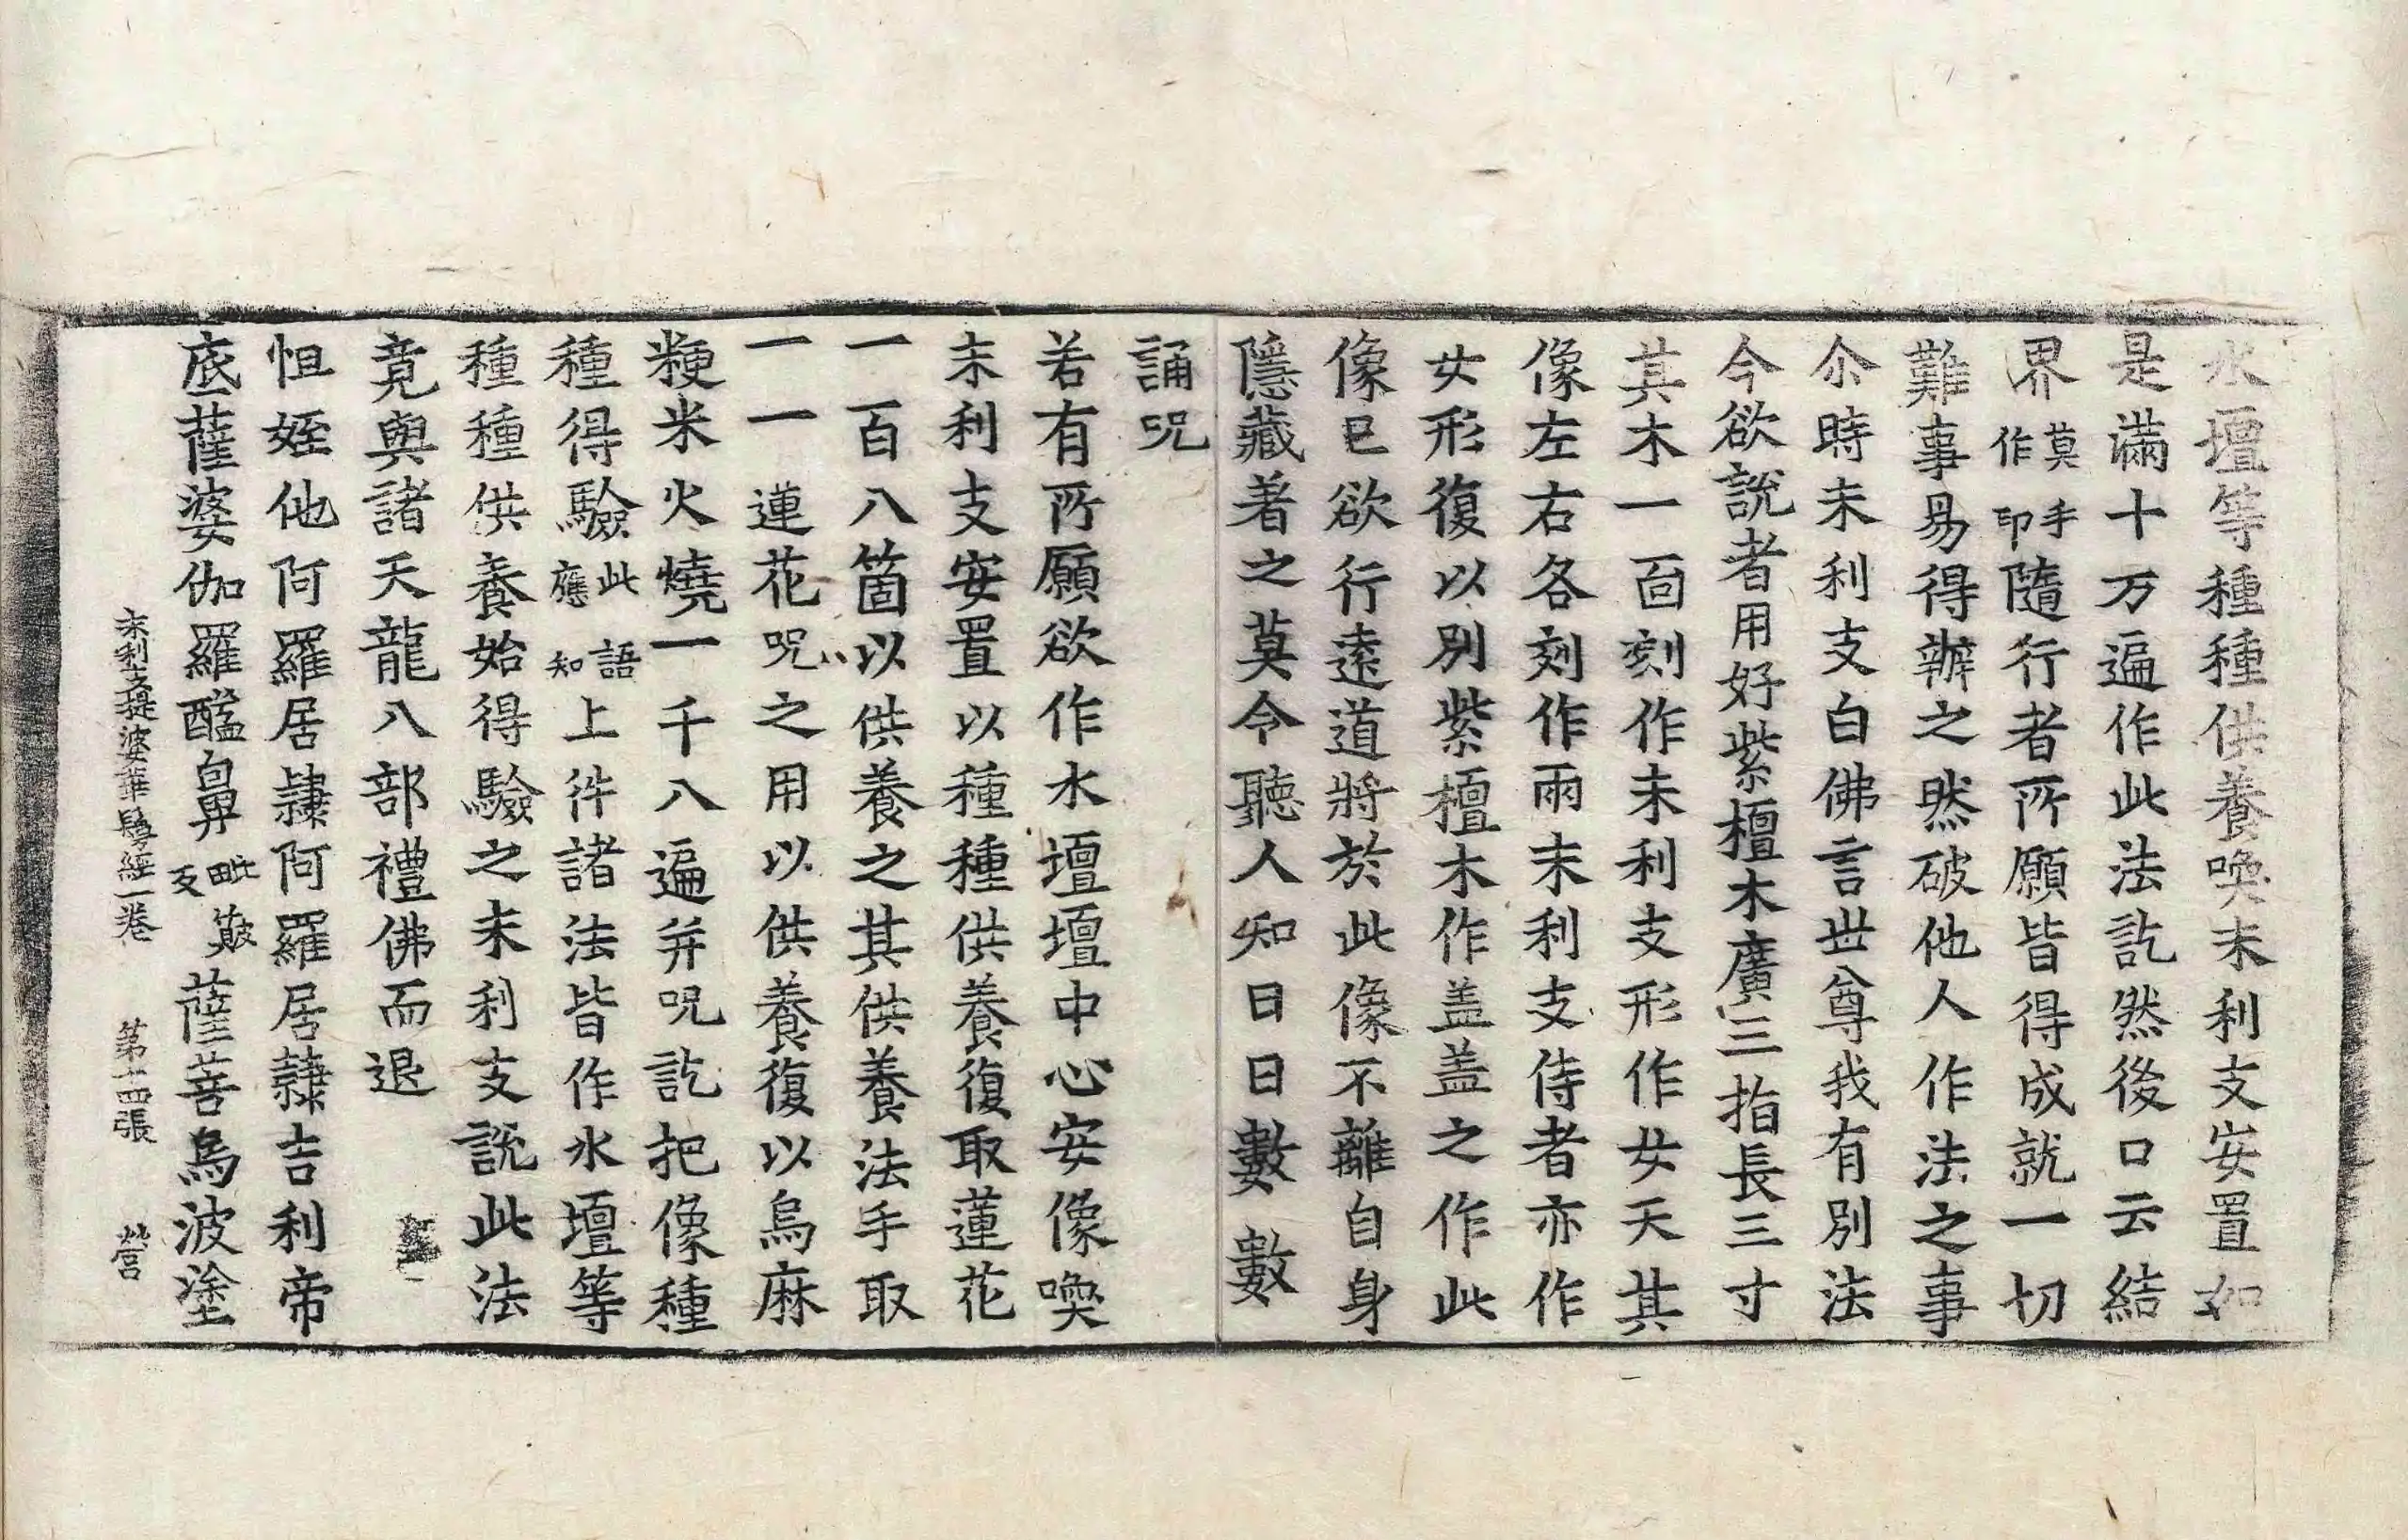 水壇等種種供養喚末利支安置如
是滿十万遍作此法訖然後口云結
界莫作手印隨行者所願皆得成就一切
難事易得辦之然破他人作法之事
尒時末利支白佛言世尊我有別法
今欲說者用好紫檀木廣三指長三寸
其木一面刻作末利支形作女天其
像左右各刻作兩末利支侍者亦作
女形復以別紫檀木作盖盖之作此
像已欲行遠道將於此像不離自身
隱藏著之莫令聽人知日日數數
誦呪
若有所願欲作水壇壇中心安像喚
末利支安置以種種供養復取蓮花
一百八箇以供養之其供養法手取
一一蓮花呪之用以供養復以烏麻
粳米火燒一千八遍并呪訖把像種
種得驗此語應知上件諸法皆作水壇等
種種供養始得驗之末利支說此法
竟與諸天龍八部禮佛而退
怛姪他阿羅居隷阿羅居隷吉利帝
底薩婆伽羅醯鼻毗蔽反薩菩烏波塗
末利支提婆華鬘經一卷 第十四張 營